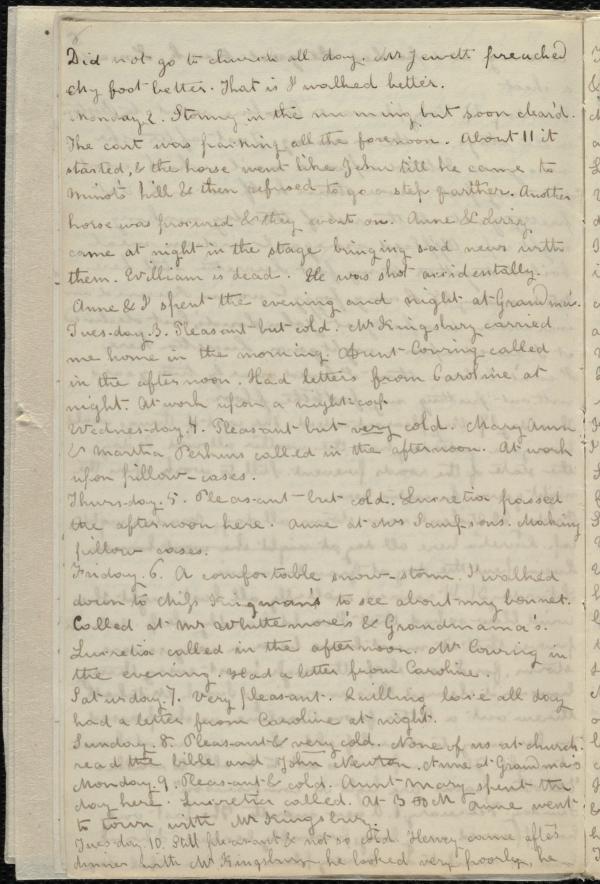 Did not go to church all day. Mr Jewett preached
My foot better. That is I walked better.
Monday 2. Stormy in the morning but soon clear'd.
The cart was packing all the forenoon. About 11 it
started, & the horse went like Jehu till he came to
Minot's hill & then refused to go a step farther. Another
horse was procured & they went on. Anne &
came at night in the stage bringing sad news with
them. William is dead. He was shot accidentally.
Anne & I spent the evening and night at Grandma's.
Tues-day. 3. Pleasant but cold. Mr Kingsbury carried
me home in the morning. Aunt Cowing called
in the afternoon. Had letters from Caroline at
night. At work upon a night-cap.
Wednes-day 4. Pleasant but very cold. Mary Ann
& Martha Perkins called in the afternoon. At work
upon pillow-cases.
Thurs-day. 5. Pleas-ant-but cold. Lucretia passed
the afternoon here. Anne at Mrs Sampsons. Making
pillow cases.
Friday. 6. A comfortable snow-storm. I walked
down to Miss Kingman's to see about my bonnet.
Called at Mr Whittemore's & Grandmama's.
Lucretia called in the afternoon. Mr Cowing in
the evening. Had a letter from Caroline.
Saturday. 7. Very pleasant. Quilling lace all day
had a letter from Caroline at night.
Sunday. 8. Pleas-ant & very cold. None of us at church.
read the bible and John Newton. Anne at Grandma's
Monday. 9. Pleas-ant & cold. Aunt Mary spent the
day here. Lucretia called. At 3 Anne went
to town with Mr Kingsbury.
Tues-day. 10. Still pleas-ant & not so cold. Henry came after
dinner with Mr Kingsbury, he looked very poorly, he